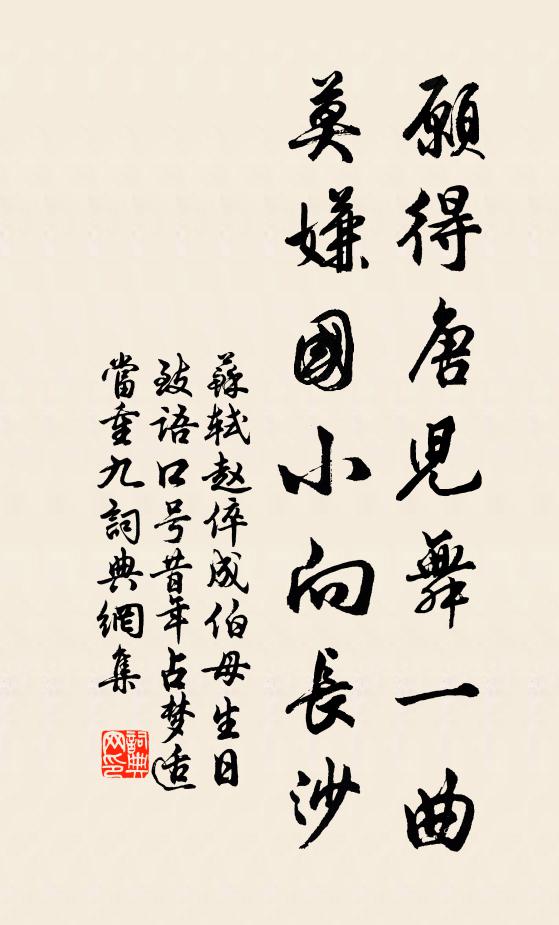 願得唐兒舞一曲
莫嫌國小向長沙
蘇軾赵倅成伯母生日
致語口号昔年占梦适
當重九詞典網集
詞典
网印